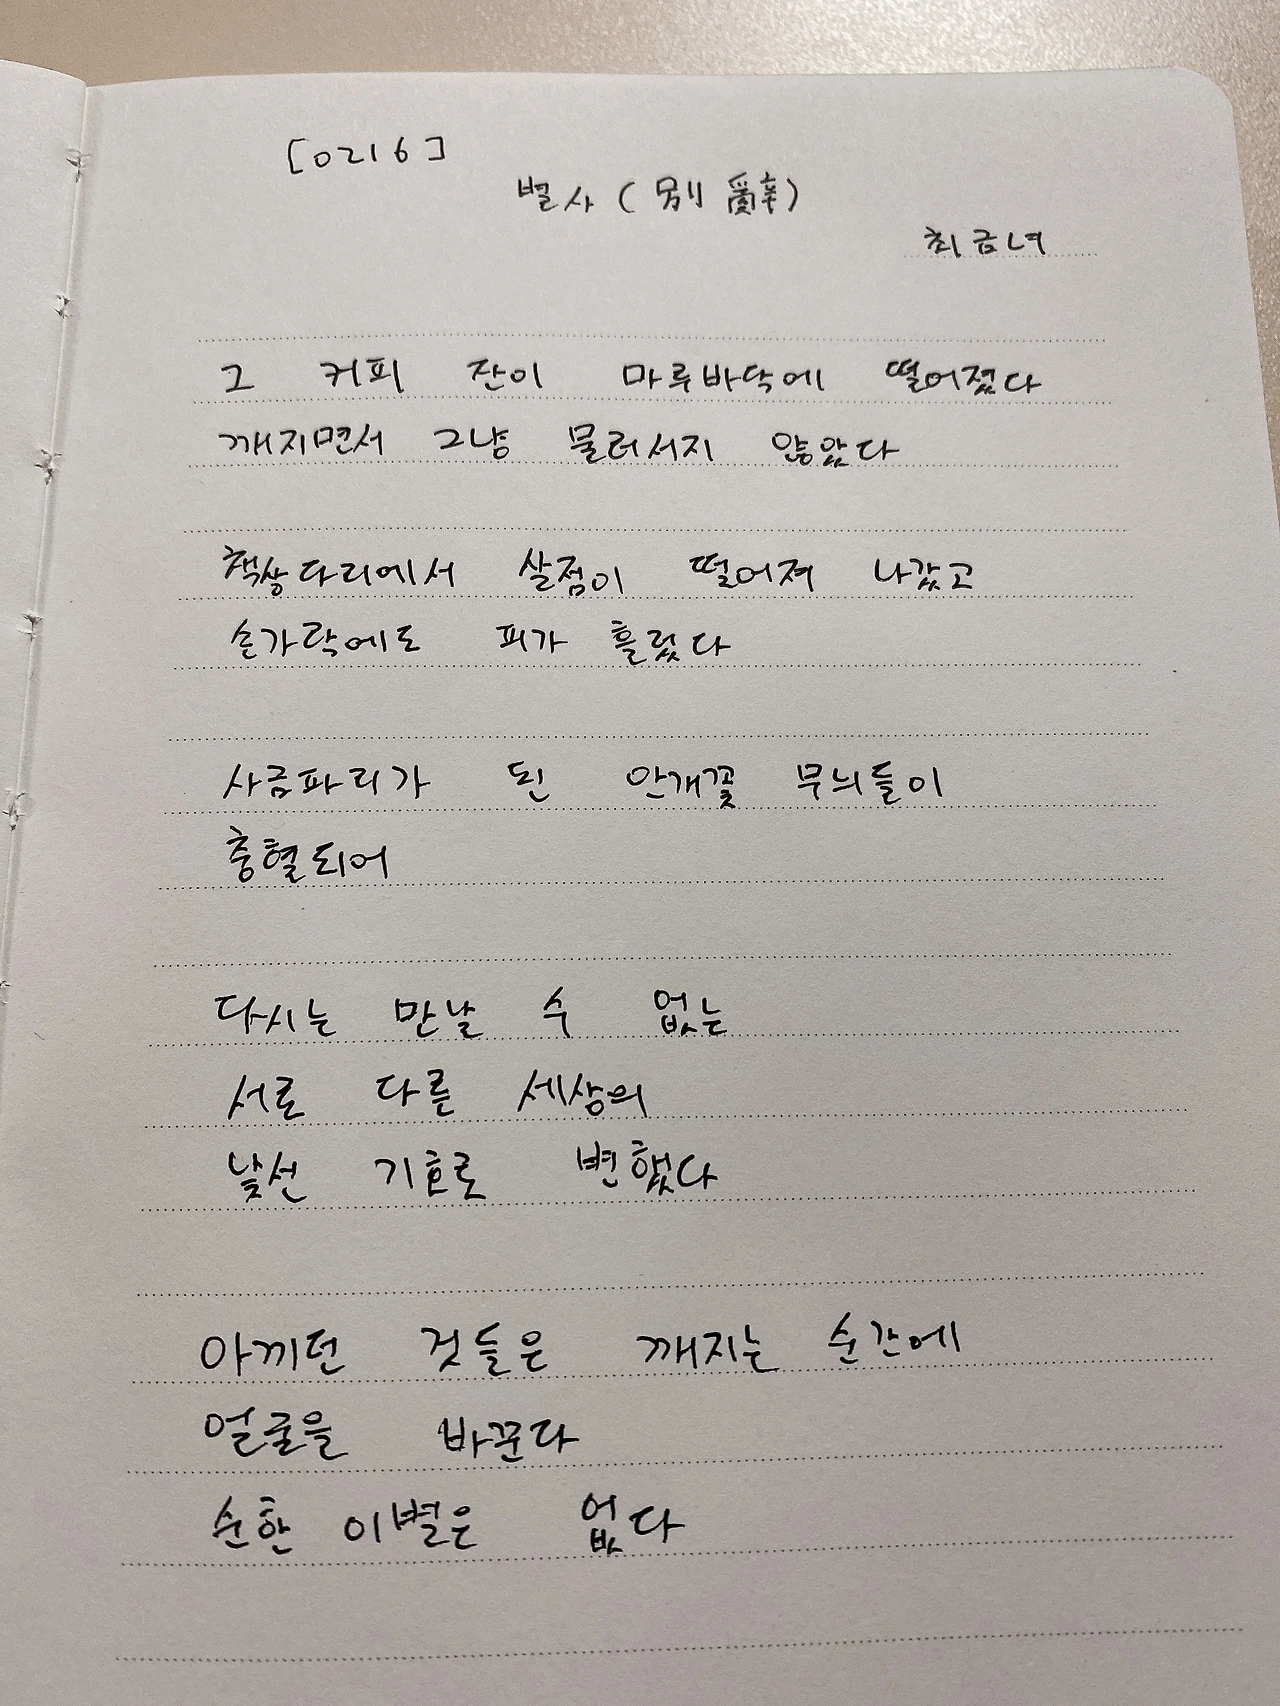 [0216]
별사(別辭)
최금녀
그 커피 잔이 마루바닥에 떨어졌다
깨지면서 그냥 물러서지 않았다
책상다리에서 살점이 떨어져 나갔고
손가락에도 피가 흘렀다
사금파리가 된 안개꽃 무늬들이
충혈되어
다시는 만날 수 없는
서로 다른 세상의
낯선 기호로 변했다
아끼던 것들은 깨지는 순간에
얼굴을 바꾼다
순한 이별은 없다